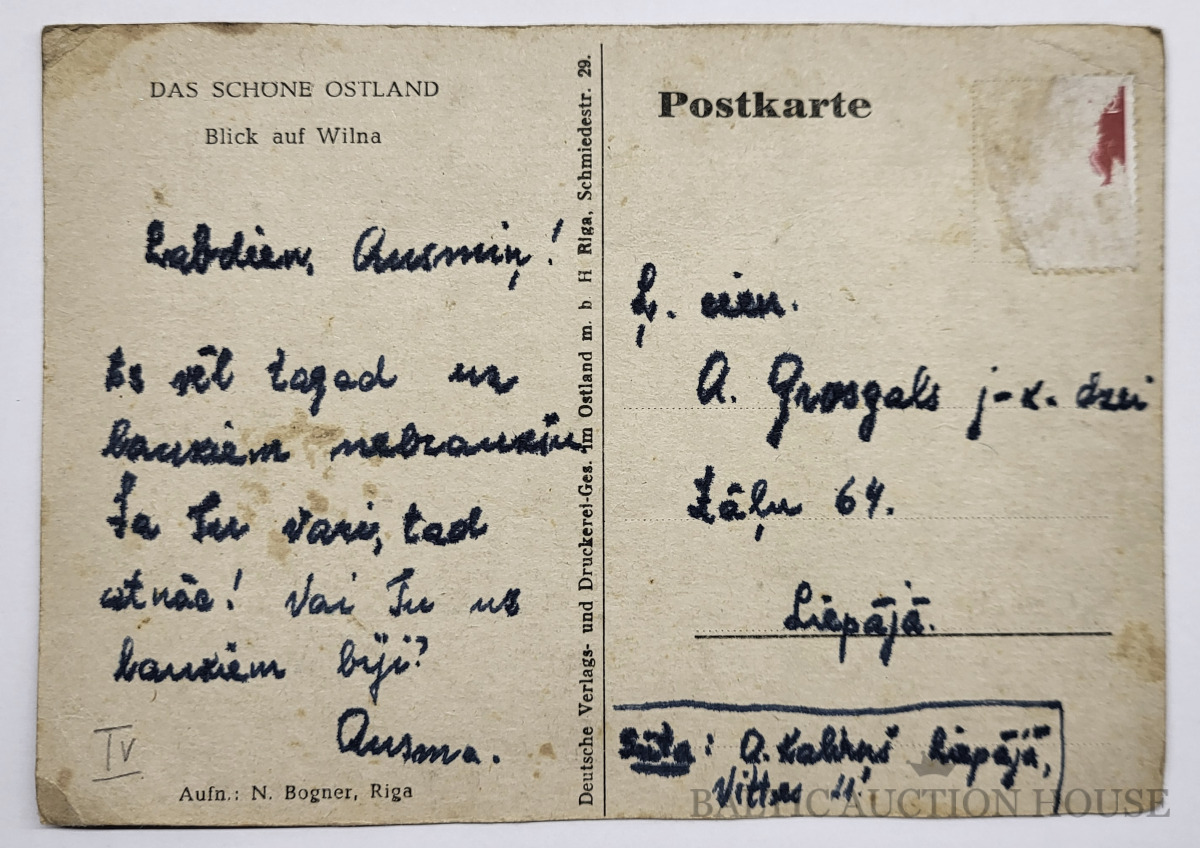 DAS SCHÖNE OSTLAND
Blick auf Wilna
Labdien, Ausmiņ!
Es vēl tagad uz
laukiem nebraukšu
Ja Tu vari, tad
atnāc! Vai Tu uz
laukiem biji?
Ausma.
IV
Aufn.: N. Bogner, Riga
Deutsche Verlags- und Druckerei-Ges. im Ostland m. b H Riga, Schmiedestr. 29.
Postkarte
Ļ. cien.
A. Grosgals j-k. dzei
Zāļu 64.
Liepājā.
Sūta: A. Liepājā,
11
BALTIC AUCTION HOUSE